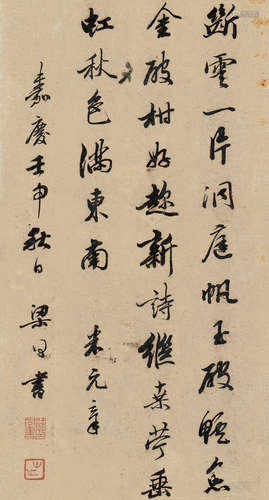 斷雲一片洞庭帆玉破鱸魚
金破柑好趁新詩繼桑苧垂
虹秋色滿東南 米元章
嘉慶壬申秋日 梁同書